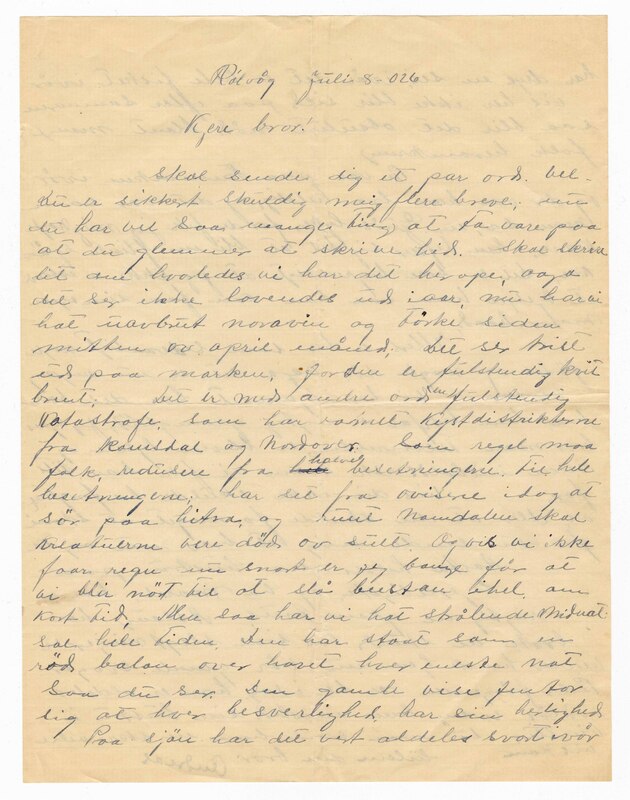 Rølvåg Juli 8-026
Kjere bror!
Skal sende dig et par ord. vel-
Du er sikkert skyldig mig flere breve, men
du har vel saa mange ting at ta vare paa
at du glemmer at skrive hid. Skal skrive
lit om hvorledes vi har det her oppe,
det ser ikke lovendes ud iaar, nu har vi
hat uavbrut noravin og Törke siden
mitten ov april måned. Det ser trist
ud paa marken, Jorden er fulstendig kvit
brent; Det er med andre ord en fulstendig
Katastrofe, som har ramt Kystdistrikterne
fra Romsdal og Nordover. Som regel maa
folk redusere fra halve besetningene, til hele
besetningene; har set fra aviserne idag at
sör paa hitra, og rundt Namdalen skal
kreaturerne vere död av sult Og vis vi ikke
faar regn nu snart er jeg bange før at
vi blir nöt til at slå bustan ihel, om
kort tid, Men saa har vi hat strålende Midnat
sol hele tiden. Den har staat som en
röd balon over havet hver eneste nat
Saa du ser. Den gamle vise
sig at hver besverlighed, har sin herlighed
Paa sjön har det vert aldeles svart ivår